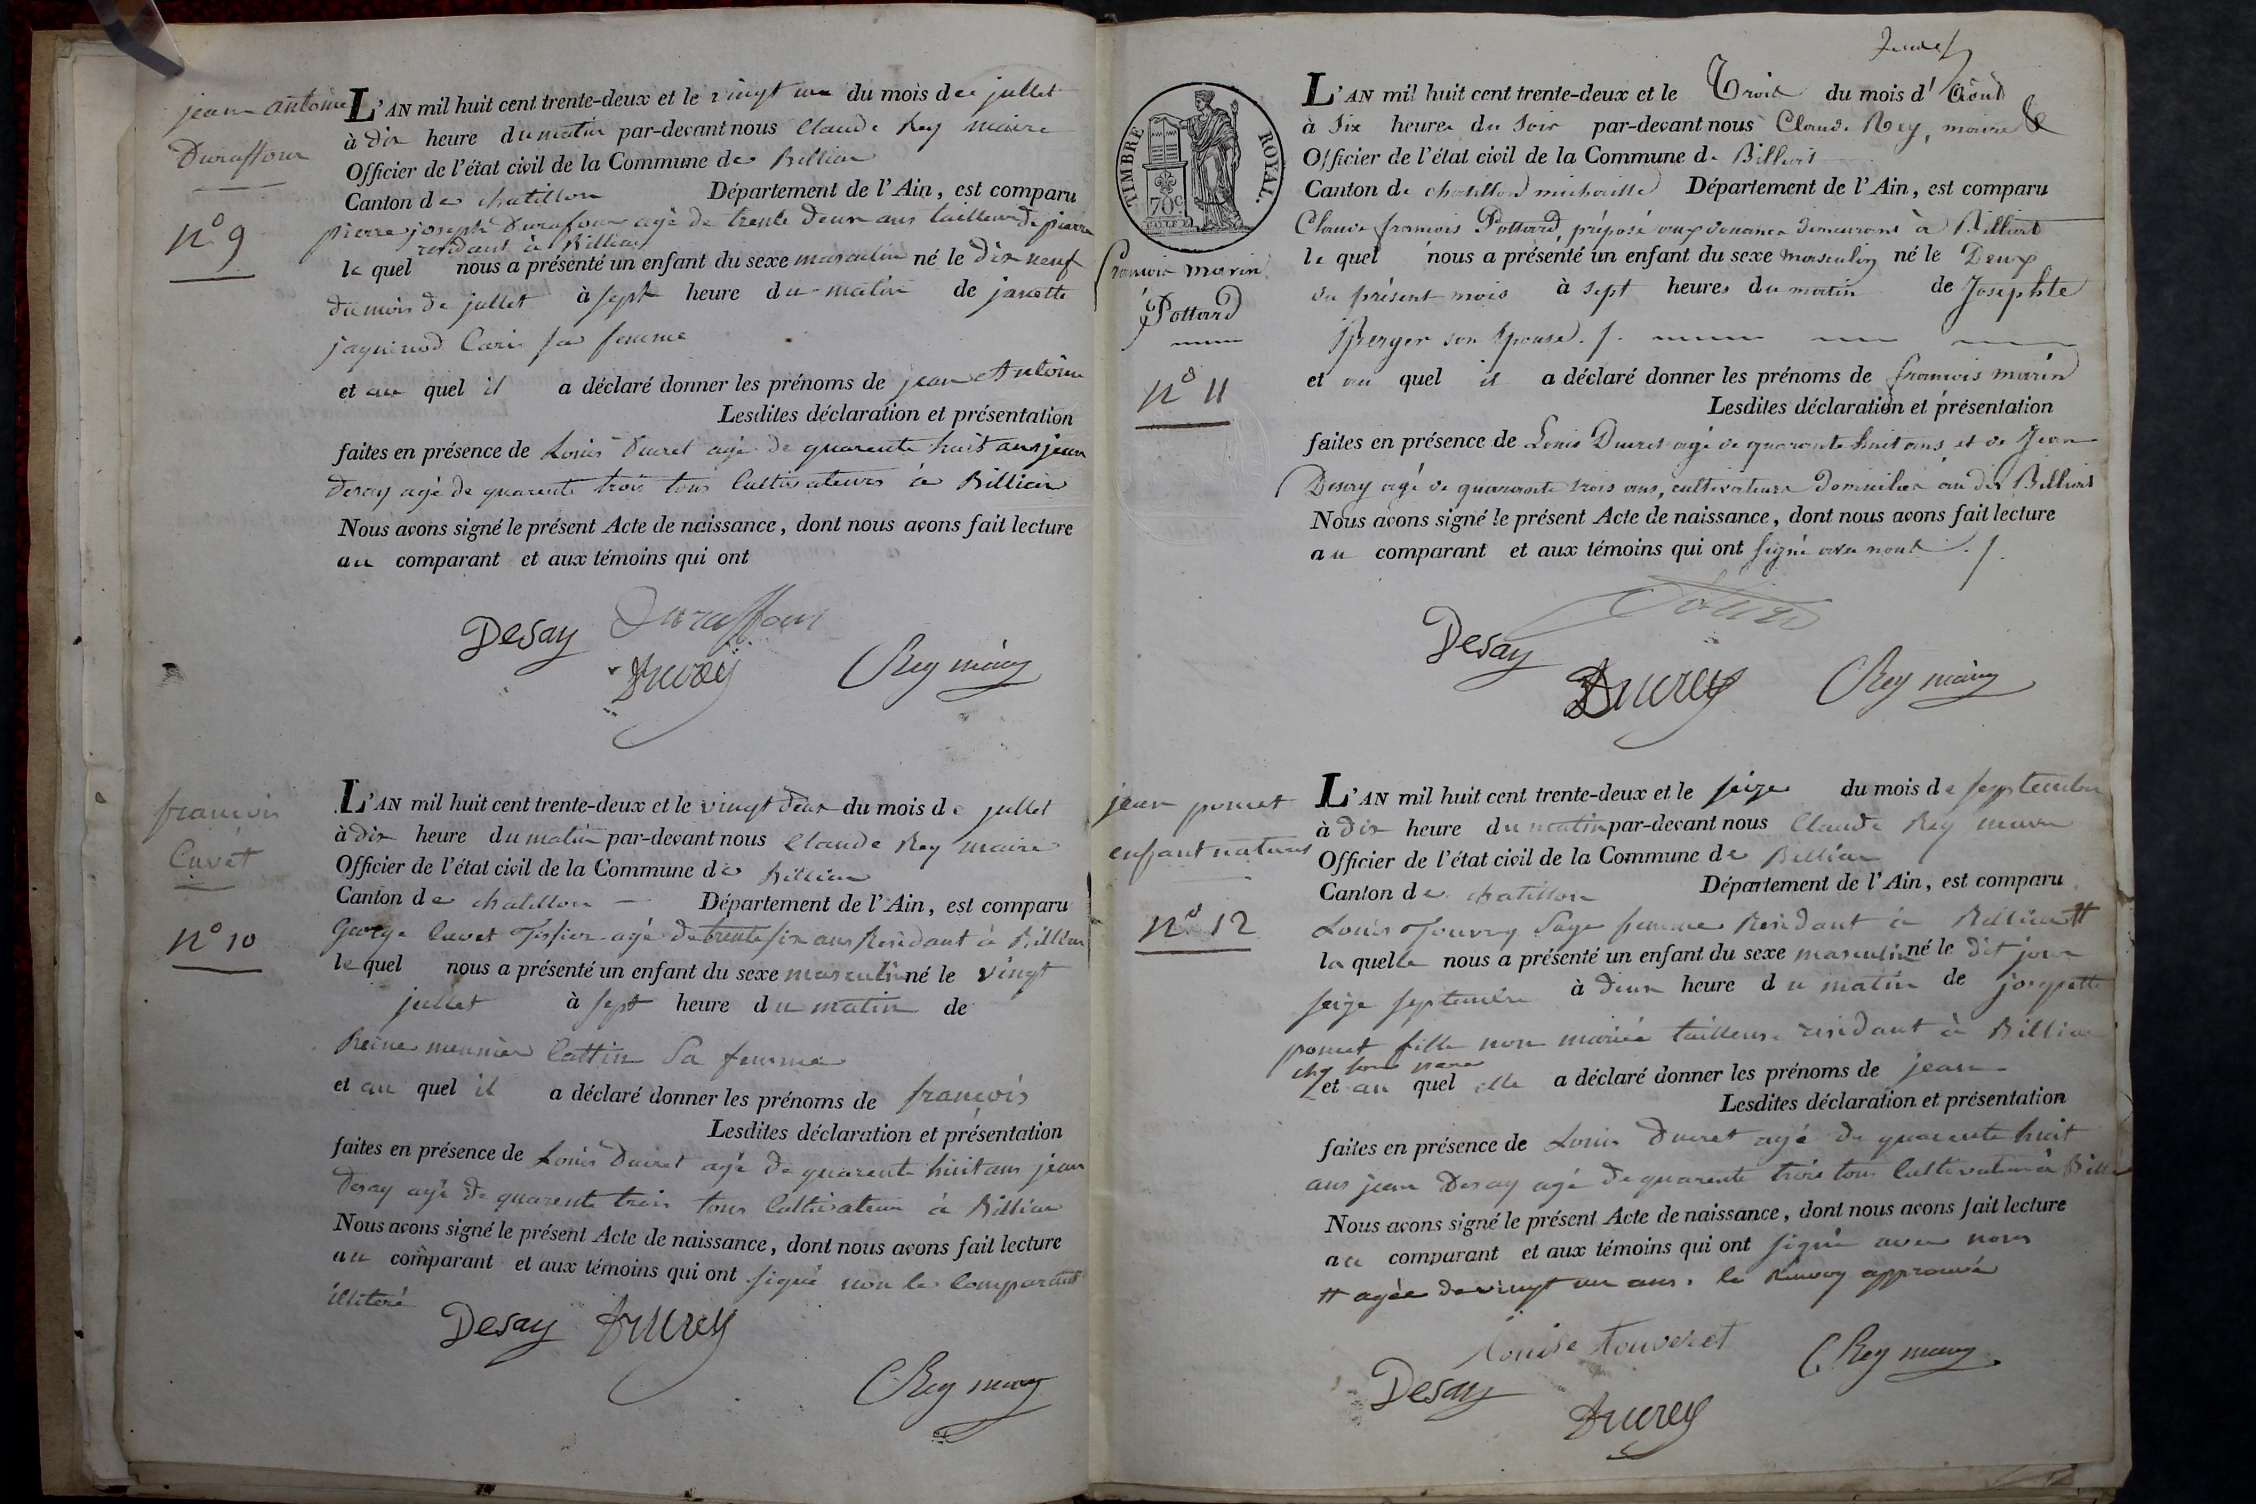 jean antoine
Duraffour
N° 9
L'AN mil huit cent trente-deux et le vingt un du mois de jullet
à dix heure du matin par-devant nous Claude Rey maire
Officier de l'état civil de la Commune de Billiat
Canton de chatillon Département de l'Ain, est comparu
pierre joseph Durafour agé de trente deux ans tailleur de pierre
residant à Billiat
le quel nous a présenté un enfant du sexe masculin né le dix neuf
du mois de jullet à sept heure du matin de janette
sa femme
et au quel il a déclaré donner les prénoms de jean Antoine
Lesdites déclaration et présentation
faites en présence de Louis Ducret agé de quarente huit ans jean
Desay agé de quarente trois tous Cultivateurs à Billiat
Nous avons signé le présent Acte de naissance, dont nous avons fait lecture
au comparant et aux témoins qui ont
Desay Duraffour
Ducrey CRey maire
françois
Cuvet
N° 10
L'AN mil huit cent trente-deux et le vingt deux du mois de jullet
à dix heure du matin par-devant nous Claude Rey maire
Officier de l'état civil de la Commune de Billiat
Canton de chatillon Département de l'Ain, est comparu
George Cuvet Tissier agé de trente six ans Residant à Billiat
le quel nous a présenté un enfant du sexe masculin né le vingt
jullet à sept heure du matin de
Reine meunier Cattin Sa femme
et au quel il a déclaré donner les prénoms de françois
Lesdites déclaration et présentation
faites en présence de Louis Ducret agé de quarente huit ans jean
Desay agé de quarente trois tous Cultivateur à Billiat
Nous avons signé le présent Acte de naissance, dont nous avons fait lecture
au comparant et aux témoins qui ont signé non le Comparant
illiteré
Desay Ducrey
CRey maire
TIMBRE ROYAL.
70c
françois marin
Pottard
N° 11
L'AN mil huit cent trente-deux et le Trois du mois d'Août
à Six heures du Soir par-devant nous Claude Rey, maire
Officier de l'état civil de la Commune de Billiat
Canton de chatillon michaille Département de l'Ain, est comparu
Claude françois Pottard, préposé aux douanes demeurant à Billiat
le quel nous a présenté un enfant du sexe masculin né le Deux
du présent mois à sept heures du matin de Josephte
Berger son épouse.
et au quel il a déclaré donner les prénoms de françois marin
Lesdites déclaration et présentation
faites en présence de Louis Ducret agé de quarante huit ans, et de Jean
Desay agé de quarante trois ans, cultivateurs domiciliés au dit Billiat
Nous avons signé le présent Acte de naissance, dont nous avons fait lecture
au comparant et aux témoins qui ont signé avec nous
Pottard
Desay
Ducrey CRey maire
jean poncet
enfant naturel
N° 12
L'AN mil huit cent trente-deux et le seize du mois de septembre
à dix heure du matin par-devant nous Claude Rey maire
Officier de l'état civil de la Commune de Billiat
Canton de chatillon Département de l'Ain, est comparu
Louise Touvrey Sage femme Residant à Billiat #
la quelle nous a présenté un enfant du sexe masculin né le dit jour
seize septembre à deux heure du matin de josepette
poncet fille non mariée tailleuse residant à Billiat
chez son
et au quel elle a déclaré donner les prénoms de jean
Lesdites déclaration et présentation
faites en présence de Louis Ducret agé de quarente huit
ans jean Desay agé de quarente trois tous Cultivateur à Billiat
Nous avons signé le présent Acte de naissance, dont nous avons fait lecture
au comparant et aux témoins qui ont signé avec nous
# agée de vingt un ans. le Renvoy approuvé
Louise Touveret
Desay CRey maire
Ducrey